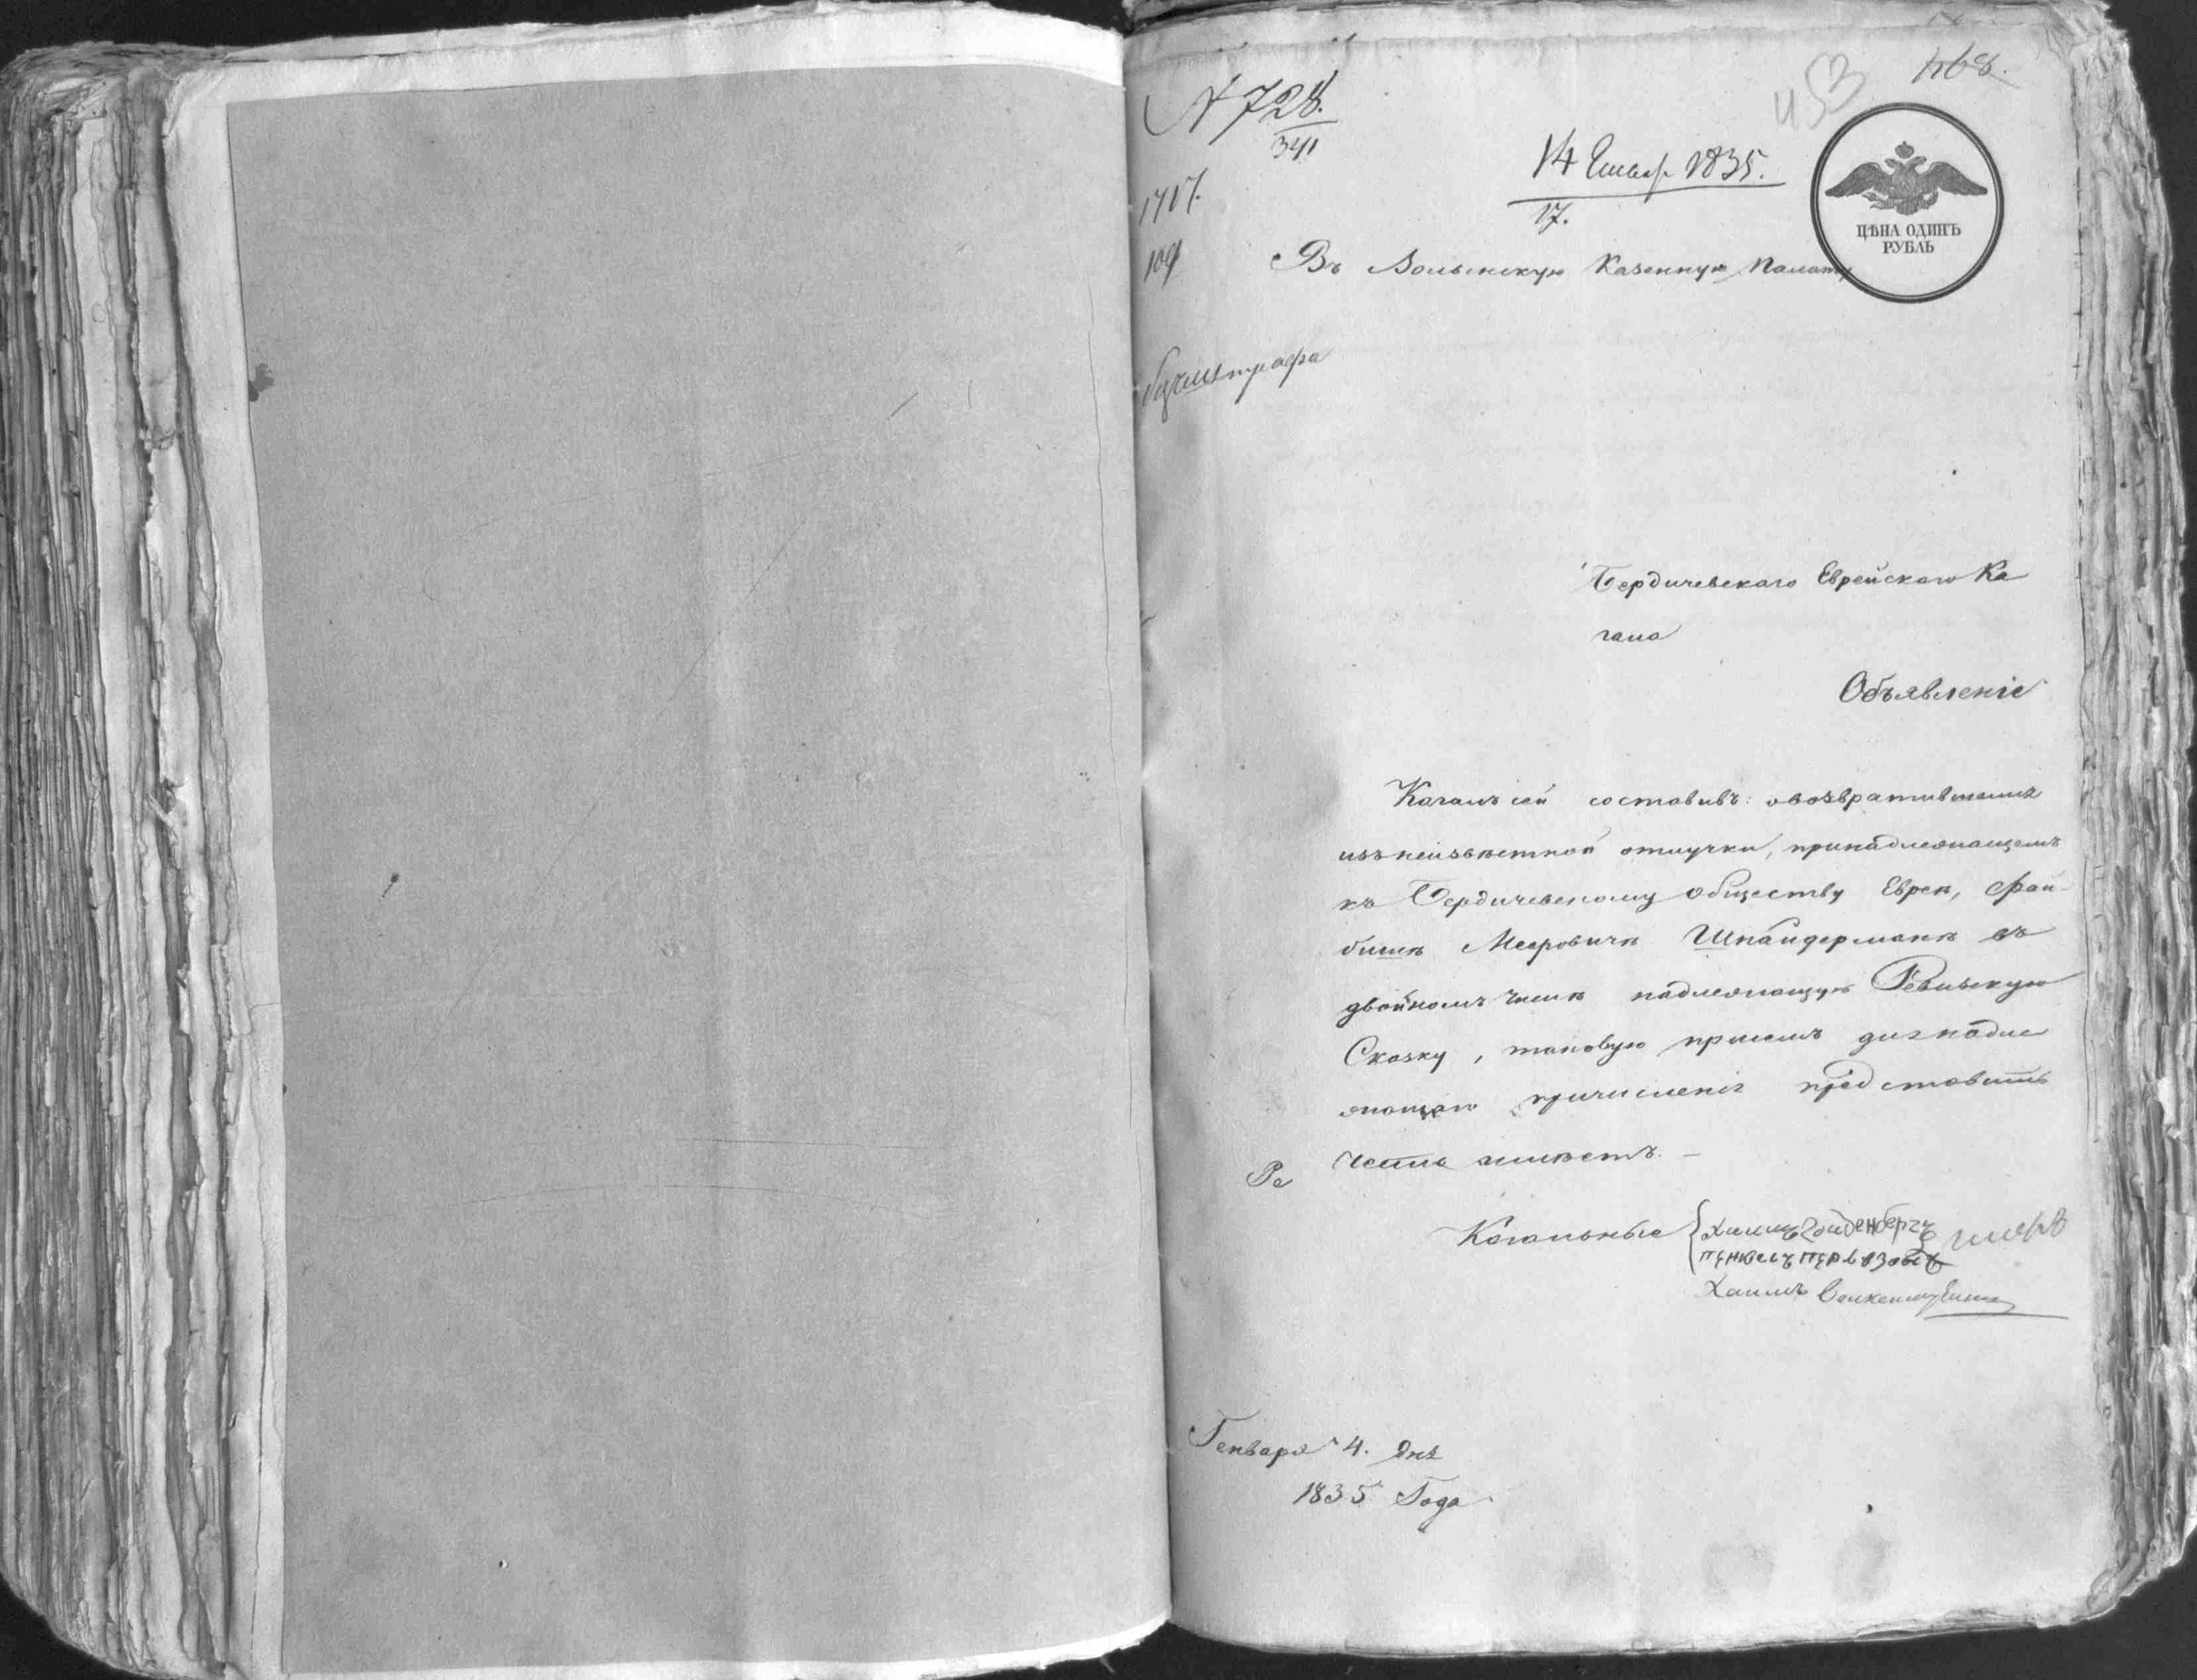 453
468.
N 728.
341
14 Генвар 1835.
17.
ЦѢНА ОДИНЪ
РУБЛЬ
Въ Волынскую Казенную Палату
безъ штрафа
Бердичевскаго Еврейскаго Ка
гала
Объявленіе
Кагалъ сей составивъ: о возвратившемся
изъ неизвѣстной отлучки, принадлежащемъ
къ Бердичевскому обществу Евреѣ, Фай-
бишѣ Мееровичѣ Шнайдерманѣ въ
двойномъ числѣ надлежащую Ревизскую
Сказку, таковую присемъ для надле
жащаго причисленія представить
честь имѣетъ. -
Ре
Кагальные
Хаимъ Зойденбергъ
Хаимъ
Генваря 4. дня
1835 Года